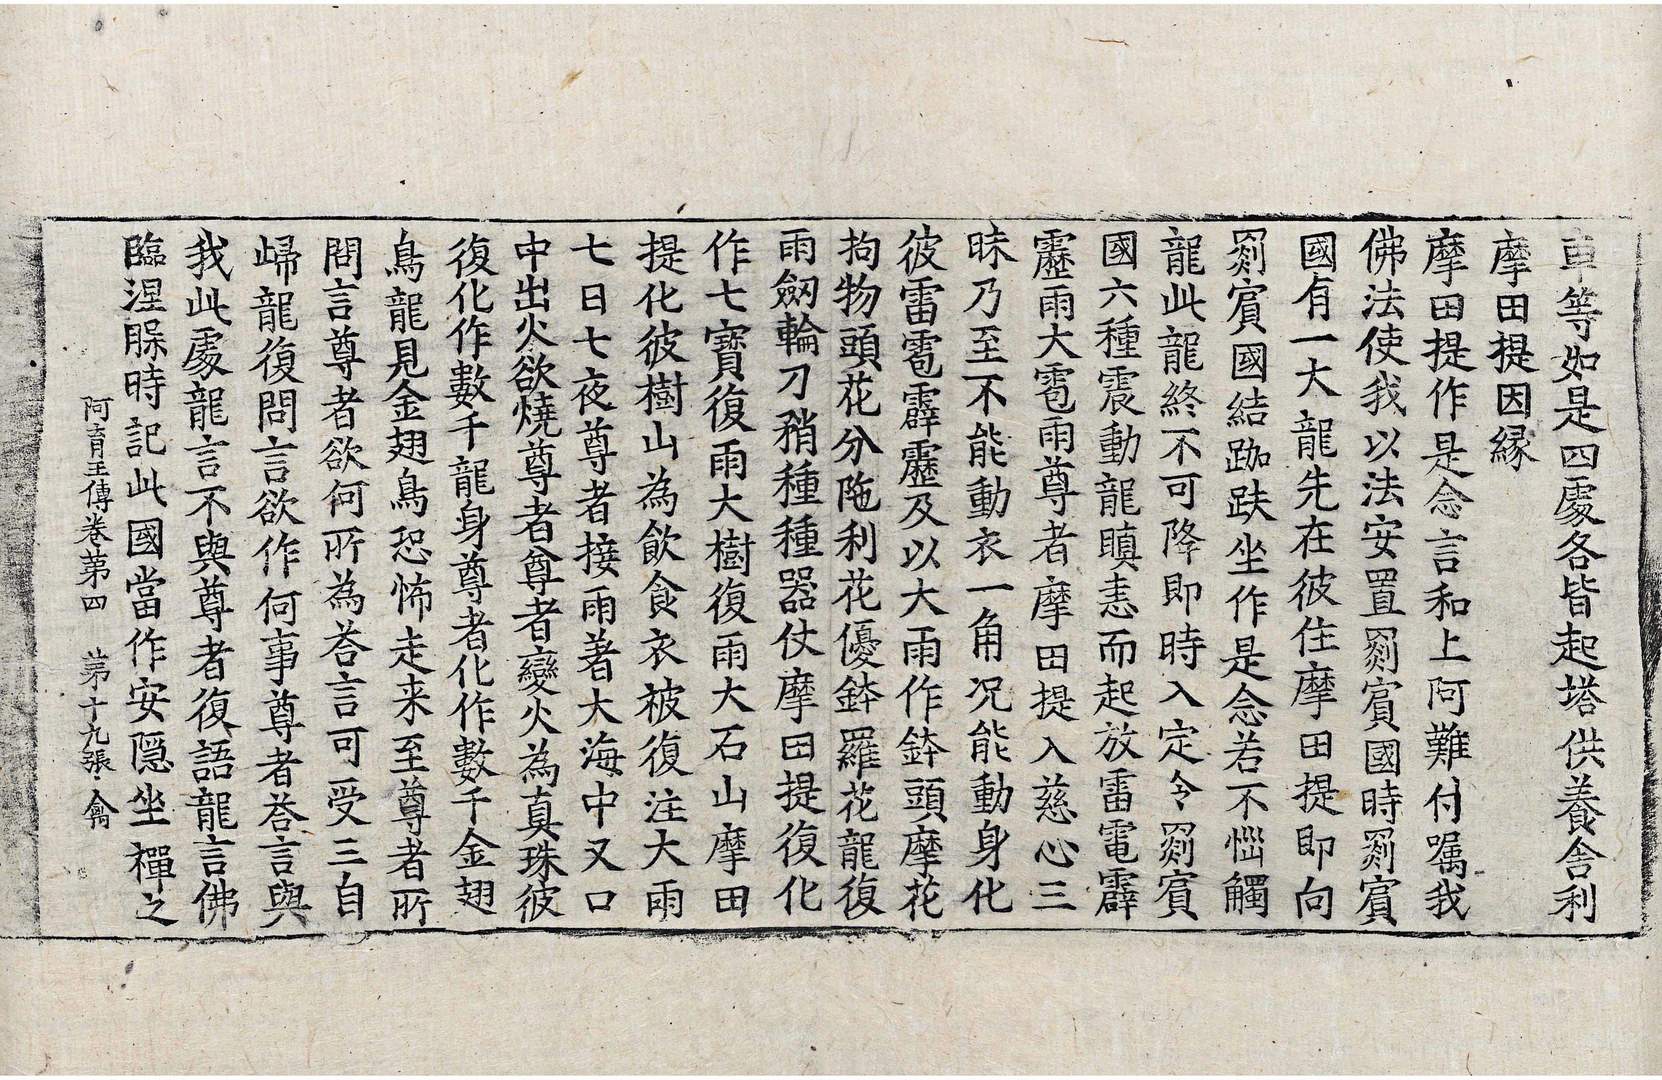 車等如是四處各皆起塔供養舍利
摩田提因緣
摩田提作是念言和上阿難付囑我
佛法使我以法安置罽賓國時罽賓
國有一大龍先在彼住摩田提即向
罽賓國結跏趺坐作是念若不惱觸
龍此龍終不可降即時入定令罽賓
國六種震動龍瞋恚而起放雷電霹
靂雨大雹雨尊者摩田提入慈心三
昧乃至不能動衣一角况能動身化
彼雷雹霹靂及以大雨作鉢頭摩花
拘物頭花分陁利花優鉢羅花龍復
雨劒輪刀矟種種器仗摩田提復化
作七寶復雨大樹復雨大石山摩田
提化彼樹山為飲食衣被復注大雨
七日七夜尊者接雨著大海中又口
中出火欲燒尊者尊者變火為真珠彼
復化作數千龍身尊者化作數千金翅
鳥龍見金翅鳥恐怖走来至尊者所
問言尊者欲何所為荅言可受三自
歸龍復問言欲作何事尊者荅言與
我此處龍言不與尊者復語龍言佛
臨涅槃時記此國當作安隱坐禪之
阿育王傳卷第四 第十九張 禽